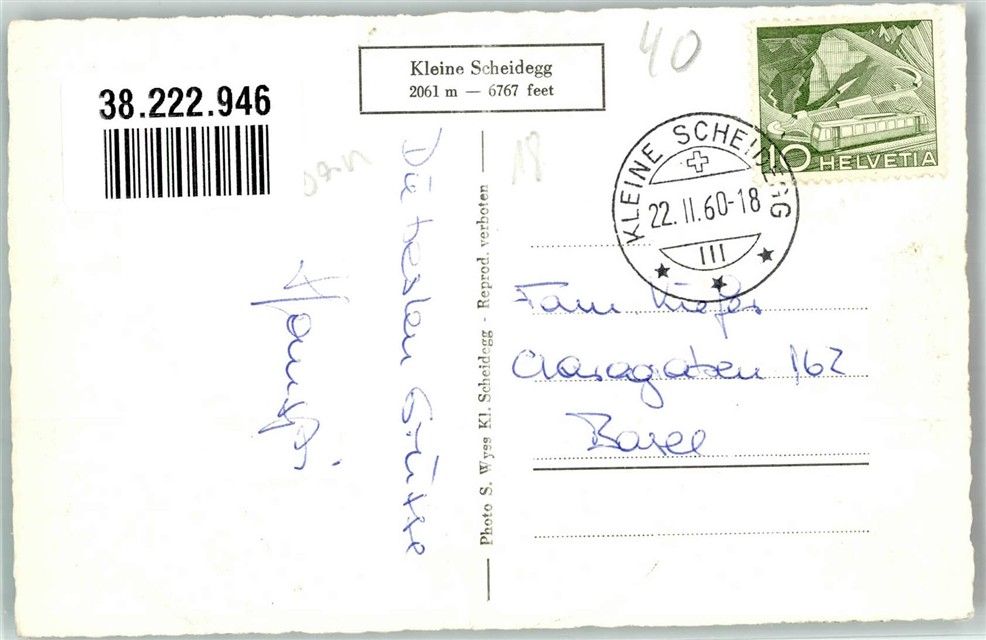 38.222.946
Kleine Scheidegg
2061 m — 6767 feet
40
18
10 HELVETIA
KLEINE SCHEIDEGG
22. II. 60-18
III
Die besten Grüsse
Photo S. Wyss Kl. Scheidegg - Reprod. verboten
Fam. Kiefer
162
Basel